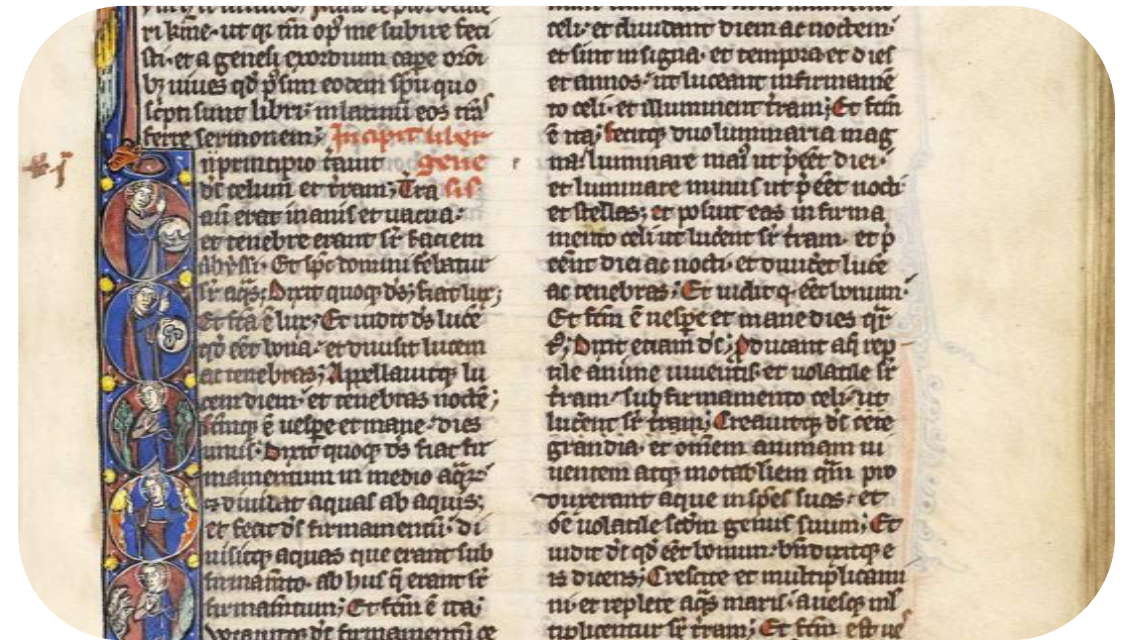 ri kme· ut qi tin op me subire feci
sti· et a genesi exordium cape oroi
bz uiues qd psim eodem spu quo
scpti sunt libri· in latinu eos tras
ferre sermonem; Incipit liber
in principio creauit gene
ds celum et tram; Tra sis
au erat inanis et uacua·
et tenebre erant sr faciem
abyssi· Et spc domini ferebatur
sr aqs; Dixit quoq ds; fiat lux;
Et fca e lux; Et uidit ds luce
qd eet bona· et diuisit lucem
ac tenebras; Appellauitq lu
cem diem· et tenebras nocte;
fcmq e uespe et mane· dies
unus· Dixit quoq ds fiat fir
mamentum in medio aqr
et diuidat aquas ab aquis;
et fecit ds firmamentu· di
uisitq aquas que erant sub
firmamto· ab hus q erant sr
firmamtum; Et fcm e ita;
Vocauitq ds firmamentu ce
celi· et diuidant diem ac noctem·
et sint in signa· et tempora et dies
et annos· ut luceant in firmame
to celi· et illuminent tram; Et fcm
e ita; fecitq duo luminaria mag
na· luminare mai ut peet diei·
et luminare minus ut peet nocti·
et stellas; et posuit eas in firma
mento celi ut lucent sr tram· et p
eent diei ac nocti· et diuidet luce
ac tenebras; Et uidit q eet bonum·
Et fcm e uespe et mane dies qr
t; Dixit etiam ds; Producant aq rep
tile anime uiuentis· et uolatile sr
tram· sub firmamento celi· ut
lucent sr tram; Creauitq ds cete
grandia· et omem animam ui
uentem atq motabilem qm pro
duxerant aque in spes suas· et
oe uolatile scdm genus suum; Et
uidit ds qd eet bonum· bndixitq e
is dicens; Crescite et multiplicami
ni· et replete aqs maris· auesq ml
tiplicentur sr tram; Et fcm est ue